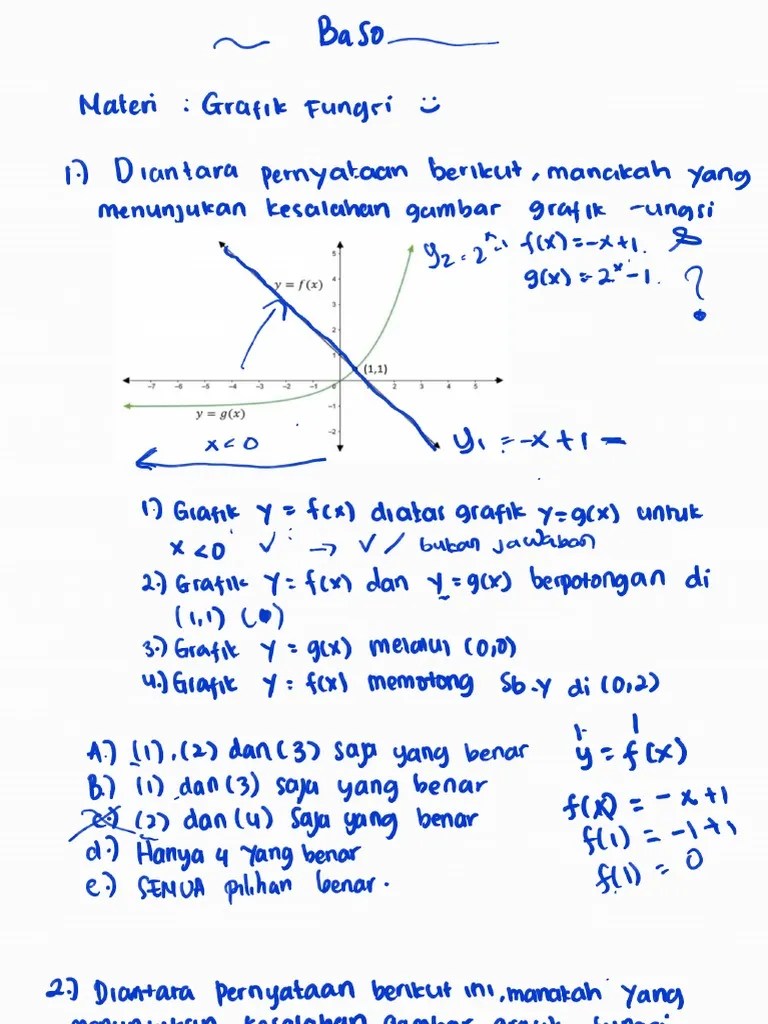 Baso
Materi : Grafik Fungsi :)
1.) Diantara pernyataan berikut, manakah yang
menunjukan kesalahan gambar grafik -ungsi
y₂ = 2ˣ-1 f(x) = -x+1.
g(x) = 2ˣ-1. ?
y = f(x)
(1,1)
5
4
3
2
1
-7 -6 -5 -4 -3 -2 -1 0 1 2 3 4 5
-1
-2
y = g(x)
x < 0
y₁ = -x + 1 -
1.) Grafik y = f(x) diatas grafik y = g(x) untuk
x < 0 ✓ : → ✓ / bukan jawaban
2.) Grafik y = f(x) dan y = g(x) berpotongan di
(1,1) (•)
3.) Grafik y = g(x) melalui (0,0)
4.) Grafik y = f(x) memotong Sb.y di (0,2)
A.) (1), (2) dan (3) saja yang benar
B.) (1) dan (3) saja yang benar
c.) (2) dan (4) Saja yang benar
d.) Hanya 4 yang benar
e.) SEMUA pilihan benar.
1 1
y = f(x)
f(x) = -x+1
f(1) = -1+1
f(1) = 0
2.) Diantara pernyataan berikut ini, manakah yang
menunjukan kesalahan gambar grafik fungsi